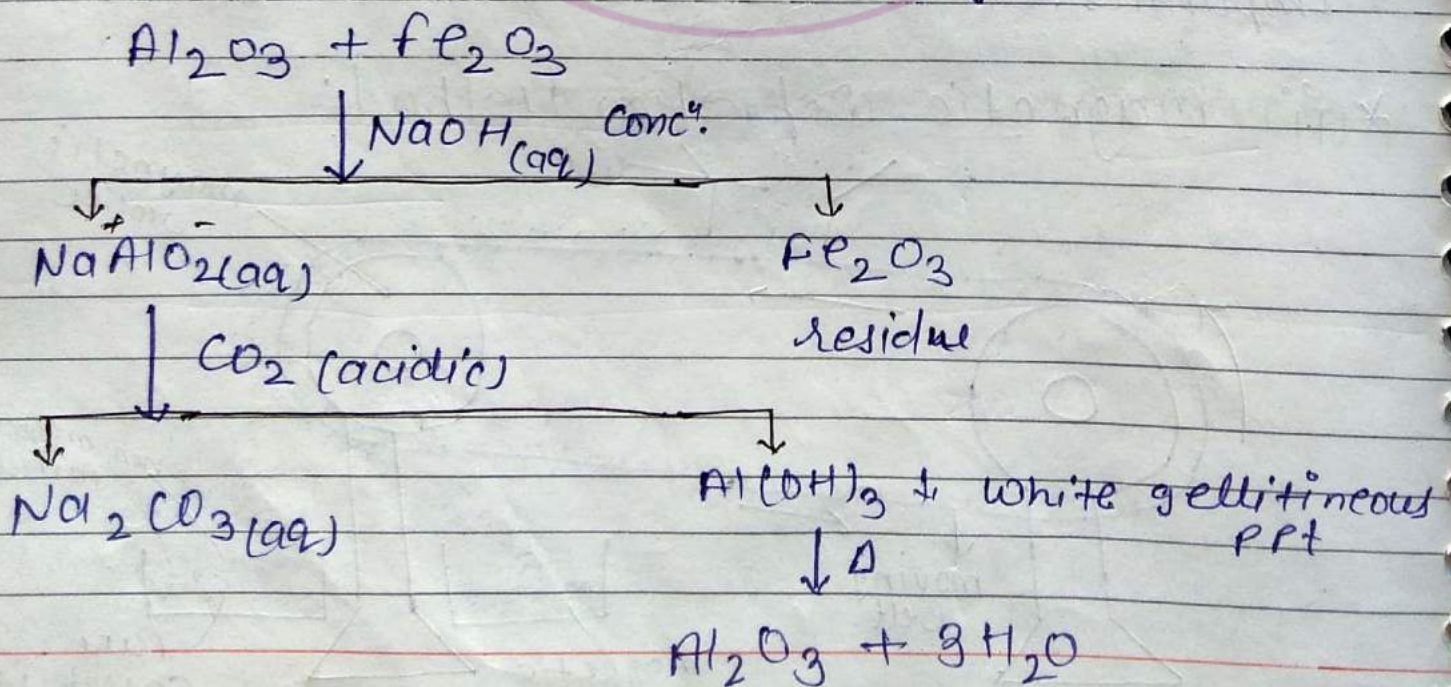 Al2O3 + Fe2O3
↓ NaOH(aq) Concn.
Na+AlO2-(aq) Fe2O3
residue
↓ CO2 (acidic)
Na2CO3(aq) Al(OH)3 ↓ white gellitineous
ppt
↓ Δ
Al2O3 + 3H2O